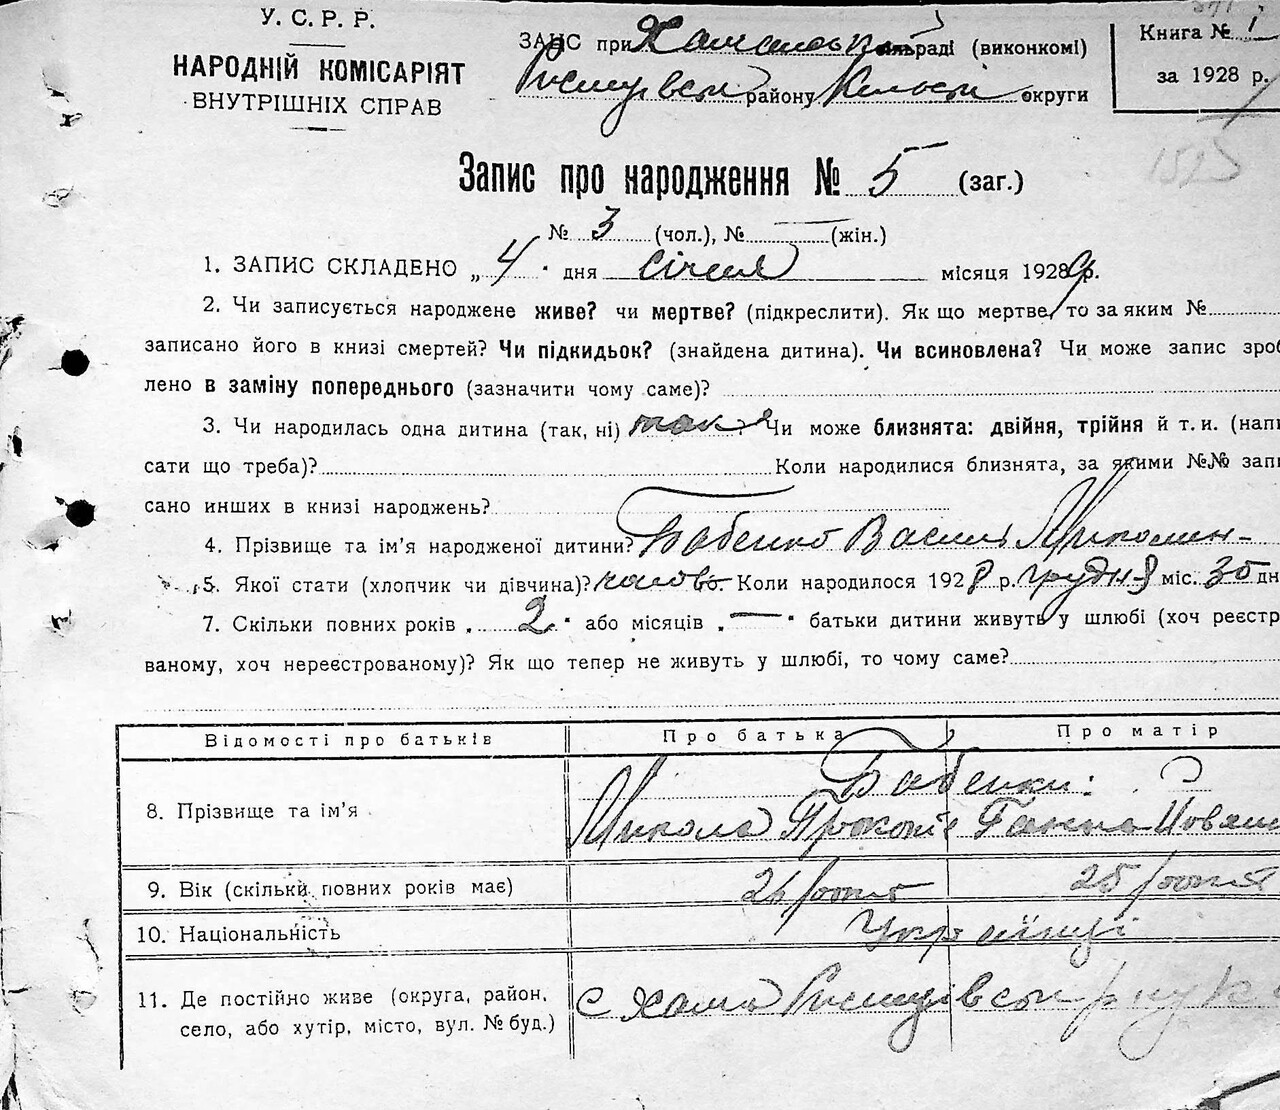 У. С. Р. Р.
НАРОДНІЙ КОМІСАРІЯТ
ВНУТРІШНІХ СПРАВ
ЗАГС при раді (виконкомі)
району округи
Книга № 1
за 1928 р.
1525
Запис про народження № 5 (заг.)
№ 3 (чол.), № — (жін.)
1. ЗАПИС СКЛАДЕНО „ 4 " дня січня місяця 1929 р.
2. Чи записується народжене живе? чи мертве? (підкреслити). Як що мертве, то за яким №
записано його в книзі смертей? Чи підкидьок? (знайдена дитина). Чи всиновлена? Чи може запис зроб
лено в заміну попереднього (зазначити чому саме)?
3. Чи народилась одна дитина (так, ні) так Чи може близнята: двійня, трійня й т. и. (напи
сати що треба)? Коли народилися близнята, за якими №№ запи
сано инших в книзі народжень?
4. Прізвище та ім'я народженої дитини? Бабенко Василь Миколин-
5. Якої стати (хлопчик чи дівчина)? чолов. Коли народилося 1928 р. грудня міс. 30 дн
7. Скільки повних років „ 2 " або місяців „ — " батьки дитини живуть у шлюбі (хоч реєстр
ваному, хоч нереєстрованому)? Як що тепер не живуть у шлюбі, то чому саме?
Відомості про батьків Про батька Про матір
Бабенки:
8. Прізвище та ім'я Микола Прокопів Ганна
9. Вік (скільки повних років має) років 25 років
10. Національність Українці
11. Де постійно живе (округа, район,
село, або хутір, місто, вул. № буд.) с